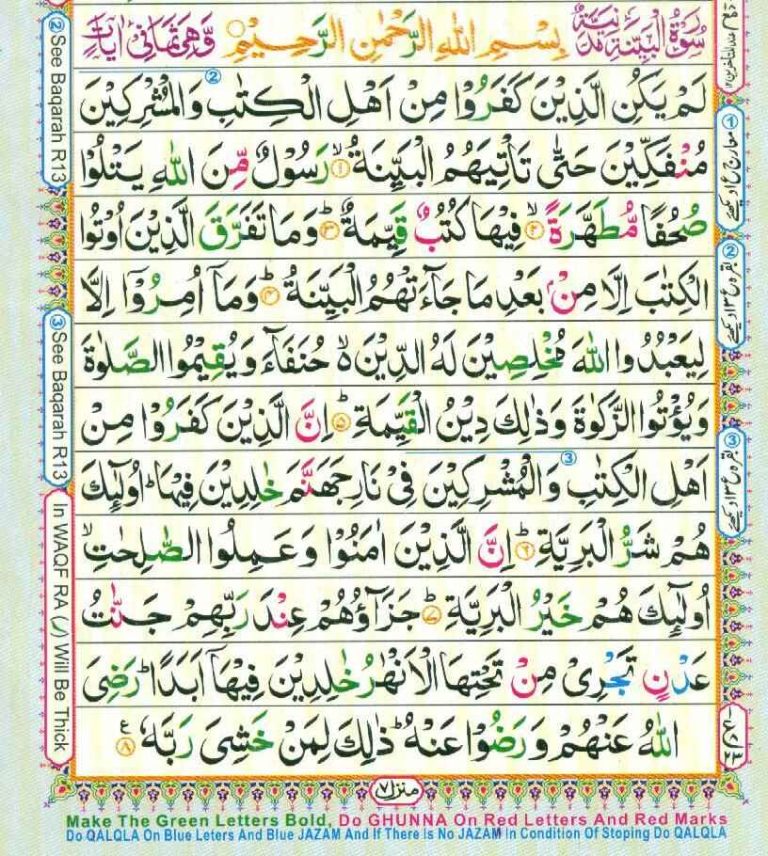 سُوْرَةُ الْبَيِّنَةِ مَدَنِيَّةٌ بِسْمِ اللّٰهِ الرَّحْمٰنِ الرَّحِيْمِ وَّهِيَ ثَمَانِيْ اٰيَاتٍ
لَمْ يَكُنِ الَّذِيْنَ كَفَرُوْا مِنْ اَهْلِ الْكِتٰبِ ② وَالْمُشْرِكِيْنَ
مُنْفَكِّيْنَ حَتّٰى تَاْتِيَهُمُ الْبَيِّنَةُ ۙ ۝۱ رَسُوْلٌ مِّنَ اللّٰهِ يَتْلُوْا
صُحُفًا مُّطَهَّرَةً ۙ ۝۲ فِيْهَا كُتُبٌ قَيِّمَةٌ ؕ ۝۳ وَمَا تَفَرَّقَ الَّذِيْنَ اُوْتُوا
الْكِتٰبَ اِلَّا مِنْۢ بَعْدِ مَا جَآءَتْهُمُ الْبَيِّنَةُ ؕ ۝۴ وَمَاۤ اُمِرُوْۤا اِلَّا
لِيَعْبُدُوا اللّٰهَ مُخْلِصِيْنَ لَهُ الدِّيْنَ ۙ۬ حُنَفَآءَ وَيُقِيْمُوا الصَّلٰوةَ
وَيُؤْتُوا الزَّكٰوةَ وَذٰلِكَ دِيْنُ الْقَيِّمَةِ ؕ ۝۵ اِنَّ الَّذِيْنَ كَفَرُوْا مِنْ
اَهْلِ الْكِتٰبِ ③ وَالْمُشْرِكِيْنَ فِيْ نَارِ جَهَنَّمَ خٰلِدِيْنَ فِيْهَا ؕ اُولٰٓئِكَ
هُمْ شَرُّ الْبَرِيَّةِ ؕ ۝۶ اِنَّ الَّذِيْنَ اٰمَنُوْا وَعَمِلُوا الصّٰلِحٰتِ ۙ
اُولٰٓئِكَ هُمْ خَيْرُ الْبَرِيَّةِ ؕ ۝۷ جَزَآؤُهُمْ عِنْدَ رَبِّهِمْ جَنّٰتُ
عَدْنٍ تَجْرِيْ مِنْ تَحْتِهَا الْاَنْهٰرُ خٰلِدِيْنَ فِيْهَاۤ اَبَدًا ؕ رَضِيَ
اللّٰهُ عَنْهُمْ وَرَضُوْا عَنْهُ ؕ ذٰلِكَ لِمَنْ خَشِيَ رَبَّهٗ ۝۸ ع
② See Baqarah R13
③ See Baqarah R13
In WAQF RA (ر) Will Be Thick
① معارج ع۱ دیکھئے
② بقرہ ع۱۳ دیکھئے
③ بقرہ ع۱۳ دیکھئے
منزل ۷
Make The Green Letters Bold, Do GHUNNA On Red Letters And Red Marks
Do QALQLA On Blue Leters And Blue JAZAM And If There Is No JAZAM In Condition Of Stoping Do QALQLA